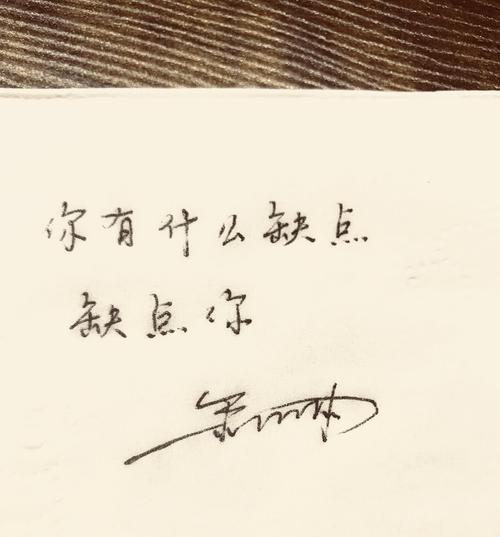 你有什么缺点
缺点你